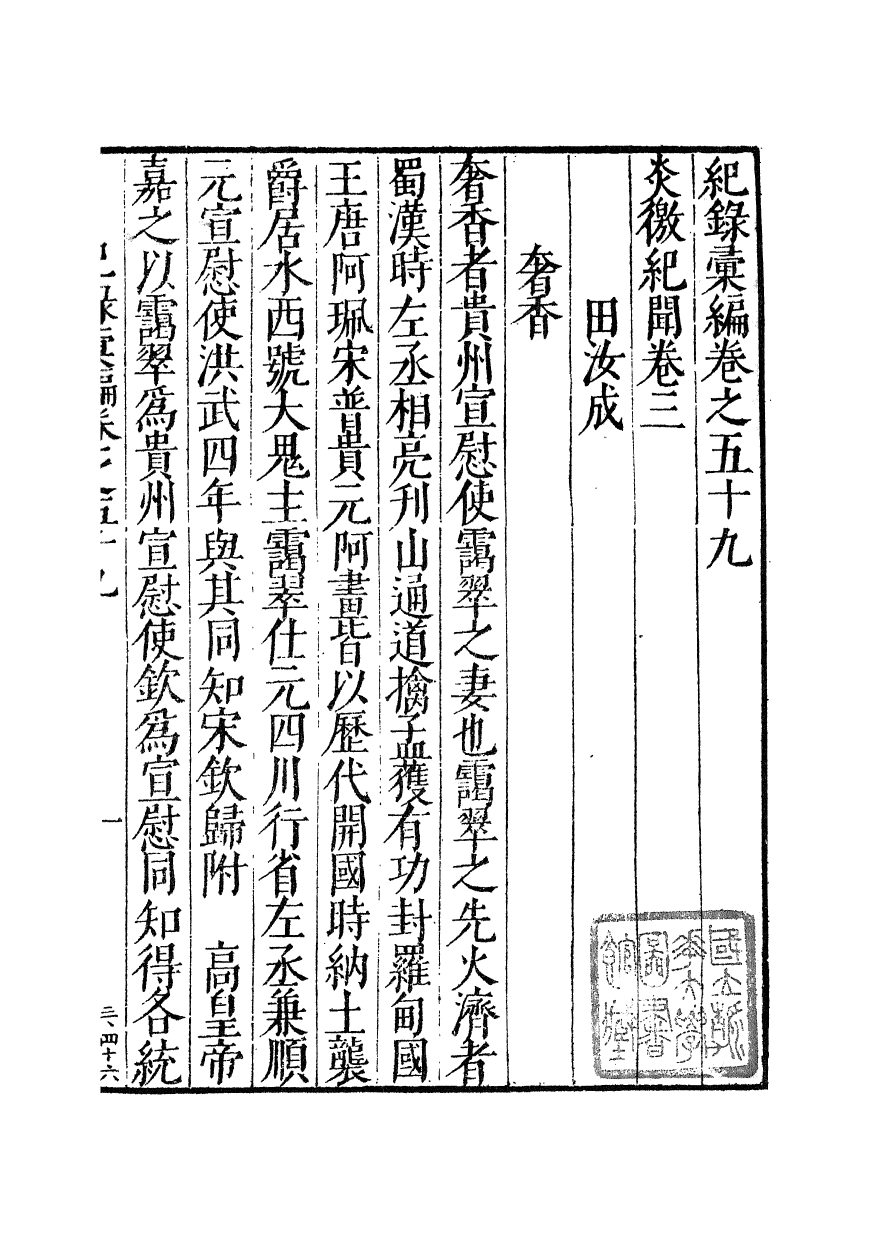 紀錄彙編卷之五十九
炎徼紀聞卷三
田汝成
奢香
奢香者貴州宣慰使靄翠之妻也靄翠之先火濟者
蜀漢時左丞相亮刋山通道擒孟獲有功封羅甸國
王唐阿珮宋普貴元阿畫皆以歷代開國時納土襲
爵居水西號大鬼主靄翠仕元四川行省左丞兼順
元宣慰使洪武四年與其同知宋欽歸附　高皇帝
嘉之以靄翠爲貴州宣慰使欽爲宣慰同知得各統
一
三、四十六
國立
大學
圖書